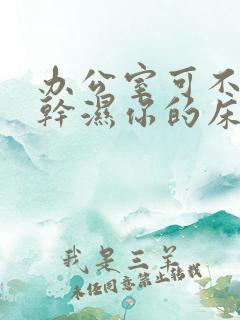 办公室可不
幹濕你的床
我是三羊
未经同意禁止转载